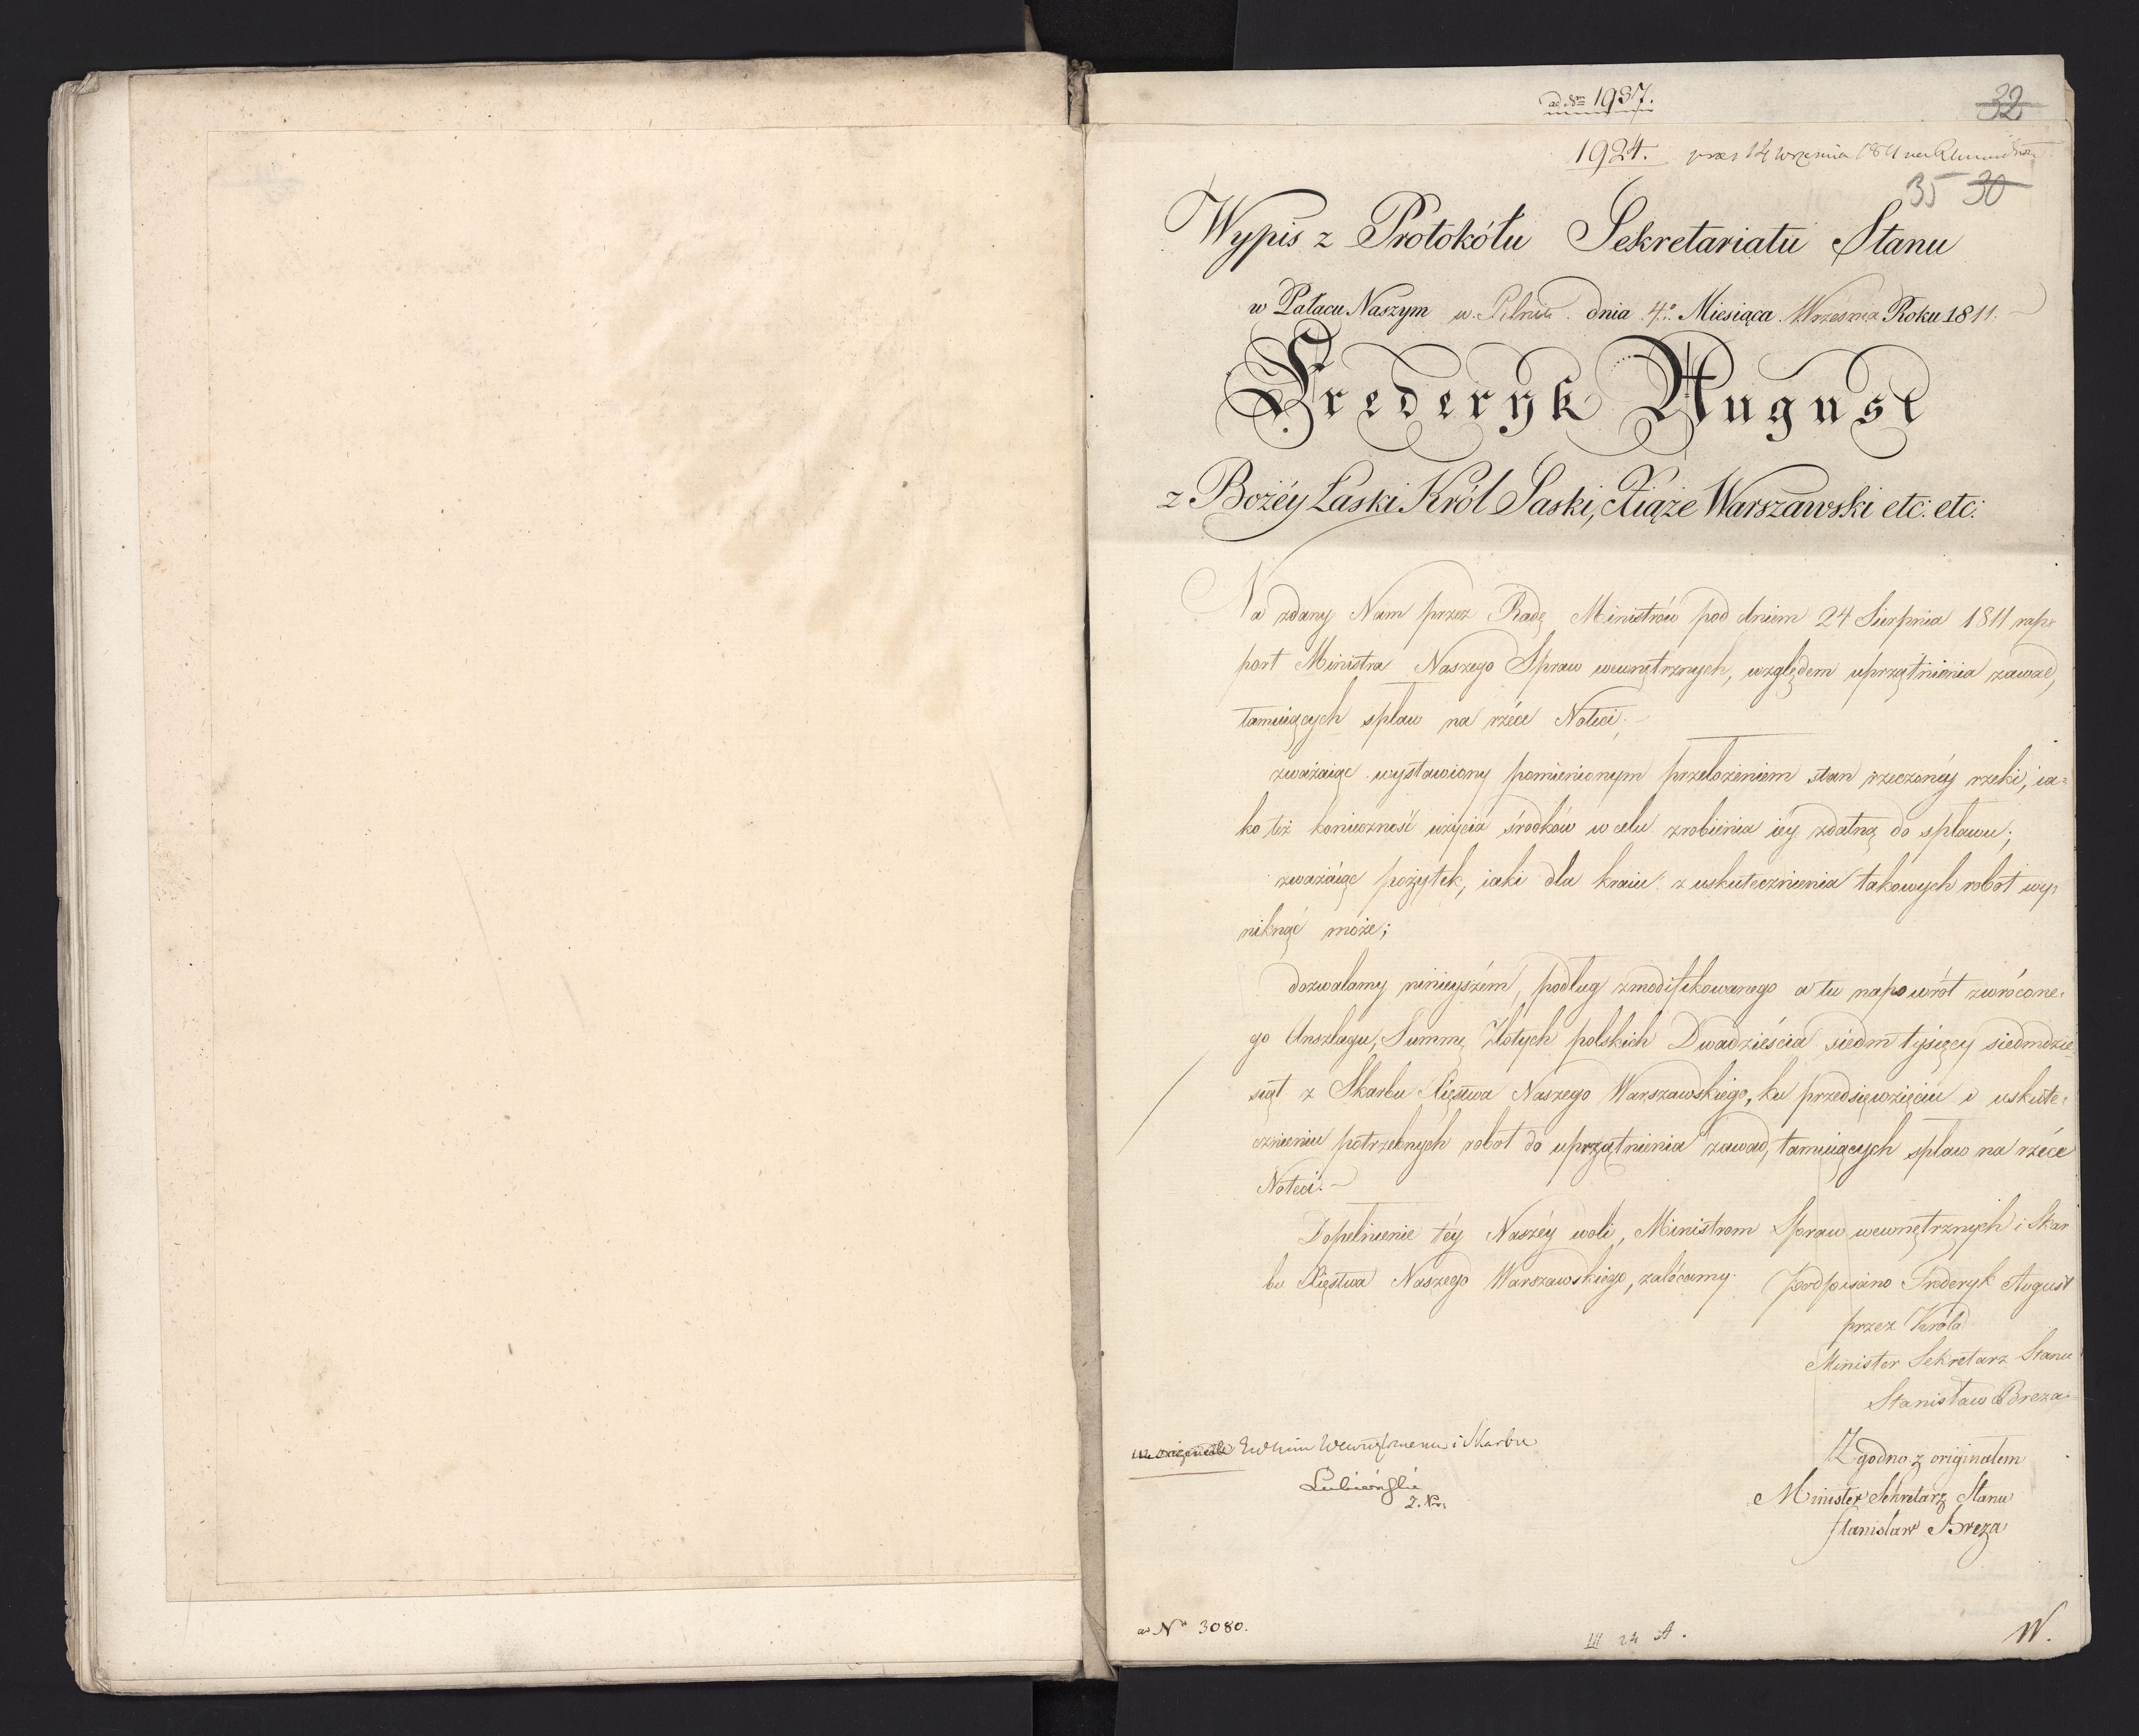 ad Nm 1937.
32
1924. 14 Września 1811
35 30
Wypis z Protokółu Sekretariatu Stanu
w Pałacu Naszym w Pilnitz dnia 4o Miesiąca Września Roku 1811.
Frederyk August
z Bożéy Łaski Król Saski, Xiąże Warszawski etc: etc:
Na zdany Nam przez Radę Ministrów pod dniem 24 Sierpnia 1811 rap-
port Ministra Naszego Spraw wewnętrznych, względem uprzątnienia zawad,
tamuiących spław na rzéce Noteci;
zważaiąc wystawiony pomienionym przełożeniem stan rzeczonéy rzeki, ia=
ko też konieczność użycia środków w celu zrobienia iey zdatną do spławu;
zważaiąc pożytek, iaki dla kraiu z uskutecznienia takowych robót wy=
niknąć może;
dozwalamy ninieyszém, podług zmodifikowanego a tu napowrót zwrócone=
go Anszlagu, Summę Złotych polskich Dwadzieścia siedm tysięcy siedmdzie
siąt z Skarbu Xięstwa Naszego Warszawskiego, ku przedsięwzięciu i uskute=
cznieniu potrzebnych robót do uprzątnienia zawad, tamuiących spław na rzéce
Noteci.
Dopełnienie téy Naszéy woli, Ministrom Spraw wewnętrznych i Skar
bu Xięstwa Naszego Warszawskiego, zalécamy. (podpisano Frederyk August
przez Króla
Minister Sekretarz Stanu
Stanisław Breza
Zgodno z originałem
Minister Sekretarz Stanu
Stanisław Breza
i Skarbu
Łubieński
ad No 3080.
III 24 A.
W.